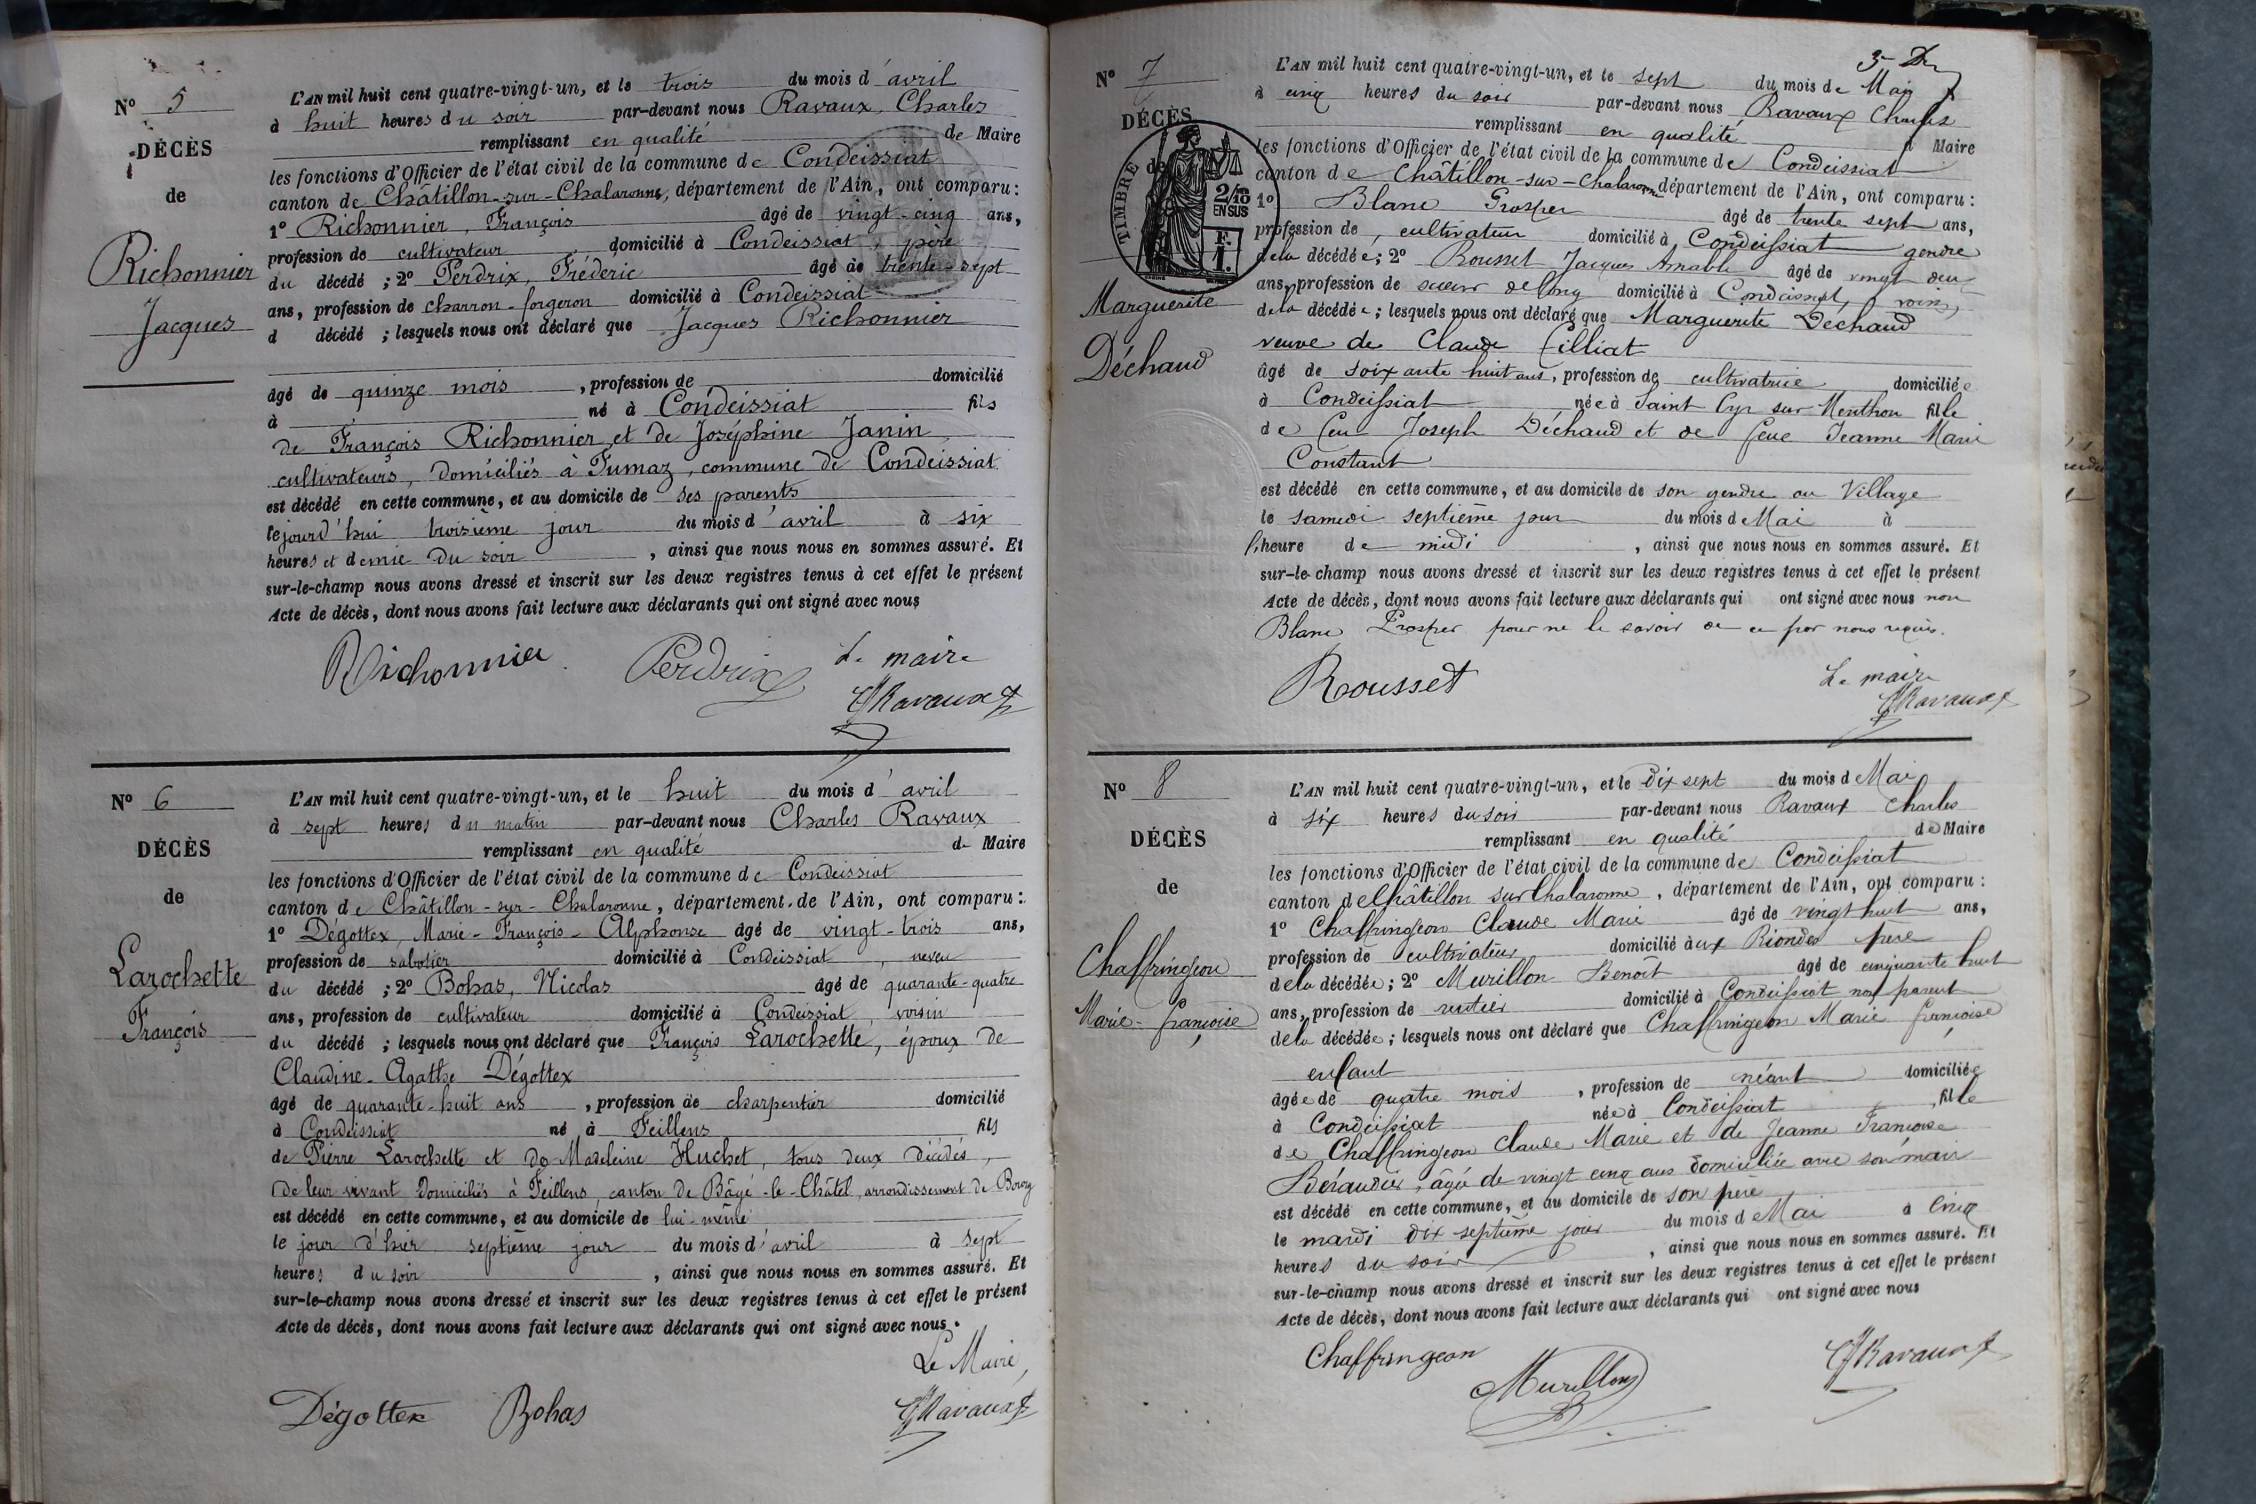 N° 5
DÉCÈS
de
Richonnier
Jacques
L'AN mil huit cent quatre-vingt-un, et le trois du mois d'avril
à huit heures du soir par-devant nous Ravaux, Charles
remplissant en qualité de Maire
les fonctions d'Officier de l'état civil de la commune de Condeissiat
canton de Châtillon-sur-Chalaronne, département de l'Ain, ont comparu :
1° Richonnier, François âgé de vingt-cinq ans,
profession de cultivateur domicilié à Condeissiat, père
du décédé ; 2° Perdrix, Fréderic âgé de trente-sept
ans, profession de charron-forgeron domicilié à Condeissiat
d décédé ; lesquels nous ont déclaré que Jacques Richonnier
âgé de quinze mois, profession de domicilié
à né à Condeissiat fils
de François Richonnier et de Joséphine Janin
cultivateurs, domiciliés à Fumaz, commune de Condeissiat
est décédé en cette commune, et au domicile de ses parents
le jourd'hui troisième jour du mois d'avril à six
heures et demie du soir, ainsi que nous nous en sommes assuré. Et
sur-le-champ nous avons dressé et inscrit sur les deux registres tenus à cet effet le présent
Acte de décès, dont nous avons fait lecture aux déclarants qui ont signé avec nous
Richonnier Perdrix Le maire
Ravaux
N° 6
DÉCÈS
de
Larochette
François
L'AN mil huit cent quatre-vingt-un, et le huit du mois d'avril
à sept heures du matin par-devant nous Charles Ravaux
remplissant en qualité de Maire
les fonctions d'Officier de l'état civil de la commune de Condeissiat
canton de Châtillon-sur-Chalaronne, département de l'Ain, ont comparu :
1° Dégottex, Marie-François-Alphonse âgé de vingt-trois ans,
profession de sabotier domicilié à Condeissiat, neveu
du décédé ; 2° Bohas, Nicolas âgé de quarante-quatre
ans, profession de cultivateur domicilié à Condeissiat, voisin
du décédé ; lesquels nous ont déclaré que François Larochette, époux de
Claudine-Agathe Dégottex
âgé de quarante-huit ans, profession de charpentier domicilié
à Condeissiat né à Feillens fils
de Pierre Larochette et de Madeleine Huchet, tous deux décédés,
de leur vivant domiciliés à Feillens, canton de Bâgé-le-Châtel, arrondissement de Bourg
est décédé en cette commune, et au domicile de lui-même
le jour d'hier septième jour du mois d'avril à sept
heures du soir, ainsi que nous nous en sommes assuré. Et
sur-le-champ nous avons dressé et inscrit sur les deux registres tenus à cet effet le présent
Acte de décès, dont nous avons fait lecture aux déclarants qui ont signé avec nous.
Le Maire,
Dégottex Bohas Ravaux
N° 7
DÉCÈS
de
TIMBRE
2/10
EN SUS
F.
1.
Marguerite
Déchaud
L'AN mil huit cent quatre-vingt-un, et le sept du mois de Mai
à cinq heures du soir par-devant nous Ravaux Charles
remplissant en qualité d Maire
les fonctions d'Officier de l'état civil de la commune de Condeissiat
canton de Châtillon-sur-Chalaronne département de l'Ain, ont comparu :
1° Blanc Prosper âgé de trente sept ans,
profession de cultivateur domicilié à Condeissiat gendre
de la décédée ; 2° Rousset Jacques Amable âgé de vingt deux
ans, profession de scieur de long domicilié à Condeissiat, voisin,
de la décédée ; lesquels nous ont déclaré que Marguerite Déchaud
veuve de Claude Cilliat
âgé de soixante huit ans, profession de cultivatrice domiciliée
à Condeissiat née à Saint Cyr sur Menthon fille
de feu Joseph Déchaud et de feue Jeanne Marie
Constant
est décédé en cette commune, et au domicile de son gendre au Village
le samedi septième jour du mois de Mai à
l'heure de midi, ainsi que nous nous en sommes assuré. Et
sur-le-champ nous avons dressé et inscrit sur les deux registres tenus à cet effet le présent
Acte de décès, dont nous avons fait lecture aux déclarants qui ont signé avec nous non
Blanc Prosper pour ne le savoir de ce par nous requis.
Rousset Le maire
Ravaux
N° 8
DÉCÈS
de
Chaffringeon
Marie-françoise
L'AN mil huit cent quatre-vingt-un, et le Dix sept du mois d Mai
à six heures du soir par-devant nous Ravaux Charles
remplissant en qualité de Maire
les fonctions d'Officier de l'état civil de la commune de Condeissiat
canton de Châtillon sur Chalaronne, département de l'Ain, ont comparu :
1° Chaffringeon Claude Marie âgé de vingt huit ans,
profession de cultivateur domicilié aux Riondes père
de la décédée ; 2° Murillon Benoît âgé de cinquante huit
ans, profession de rentier domicilié à Condeissiat non parent
de la décédée ; lesquels nous ont déclaré que Chaffringeon Marie françoise
enfant
âgée de quatre mois, profession de néant domiciliée
à Condeissiat née à Condeissiat, fille
de Chaffringeon Claude Marie et de Jeanne Francoise
Béraudier, âgée de vingt cinq ans domiciliée avec son mari
est décédé en cette commune, et au domicile de son père
le mardi dix septième jour du mois d Mai à Cinq
heures du soir, ainsi que nous nous en sommes assuré. Et
sur-le-champ nous avons dressé et inscrit sur les deux registres tenus à cet effet le présent
Acte de décès, dont nous avons fait lecture aux déclarants qui ont signé avec nous
Chaffringeon Murillon Ravaux